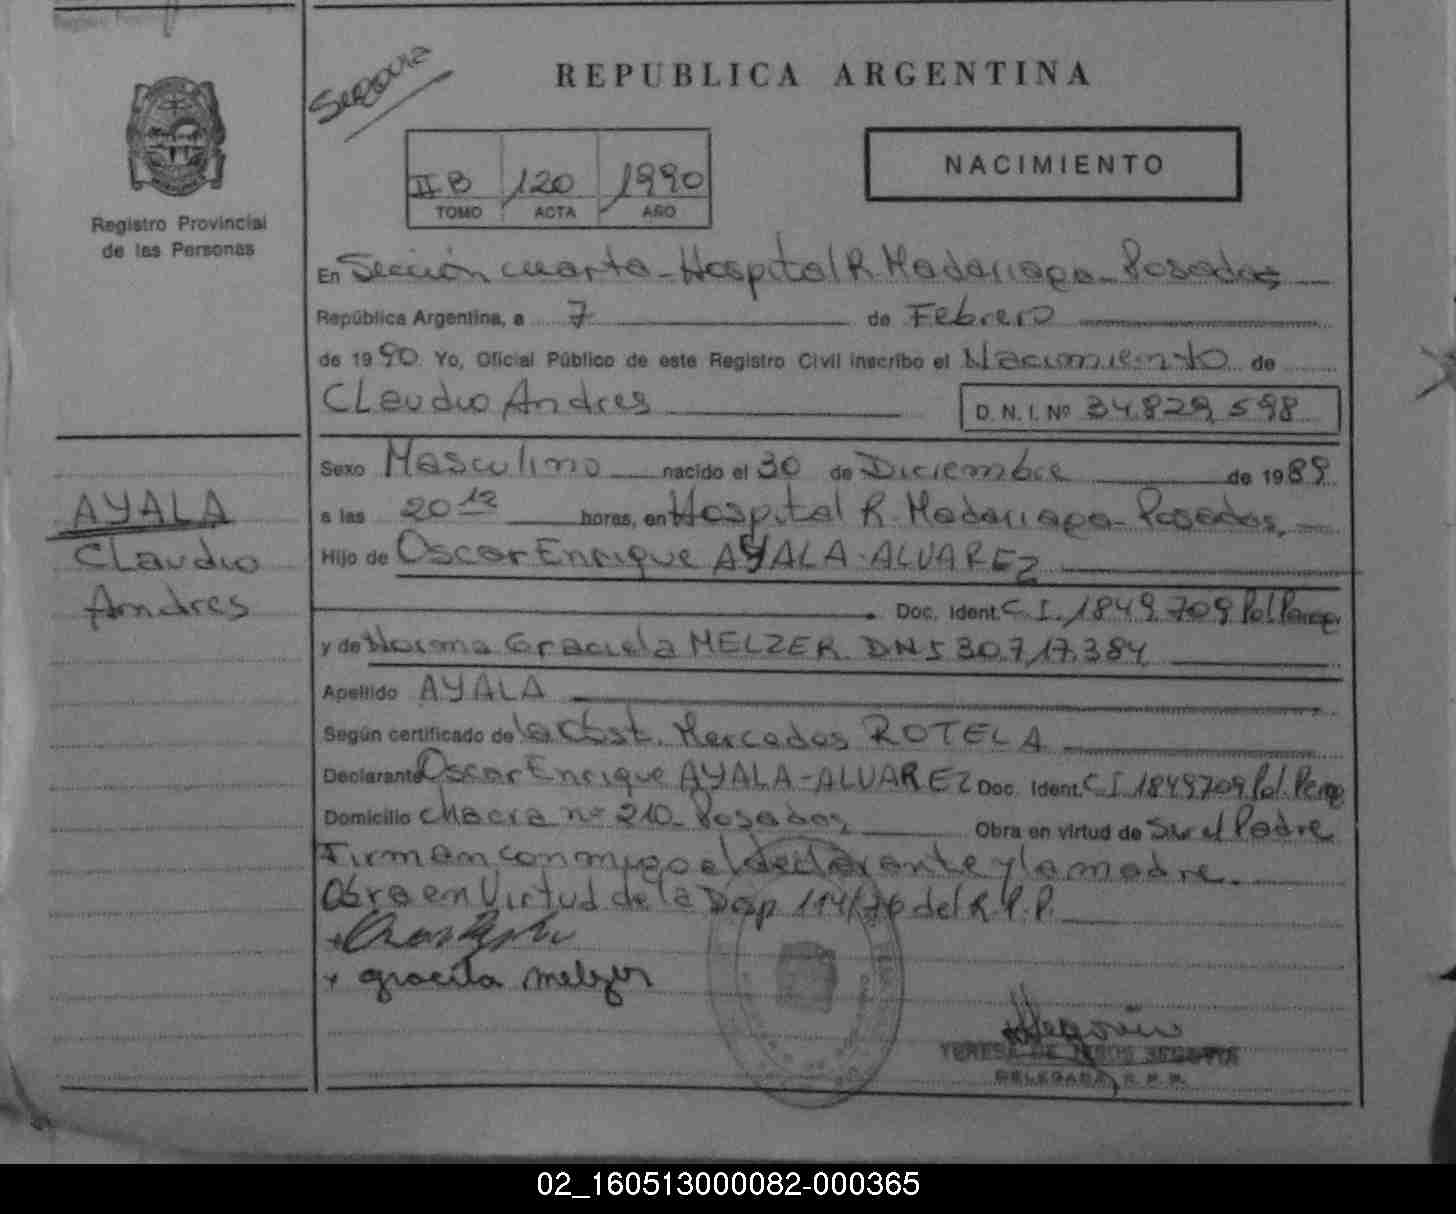 Segovia
REPUBLICA ARGENTINA
II B 120 1990
TOMO ACTA AÑO
NACIMIENTO
Registro Provincial
de las Personas
En Sección cuarta - Hospital R. Madariaga - Posadas
República Argentina, a 7 de Febrero
de 1990 Yo, Oficial Público de este Registro Civil inscribo el Nacimiento de
Claudio Andres
D. N. I. Nº 34.829.598
Sexo Masculino nacido el 30 de Diciembre de 1989
AYALA
Claudio
Andres
a las 20 12 horas, en Hospital R. Madariaga - Posadas,
Hijo de Oscar Enrique AYALA-ALVAREZ
Doc. Ident. C.I. 1849.709 Pol
y de Norma Graciela MELZER. DNI
Apellido AYALA
Según certificado de la Obst. Mercedes ROTELA
Declarante Oscar Enrique AYALA-ALVAREZ Doc. Ident. C.I. 1849709 Pol.
Domicilio chacra nº 210 - Posadas Obra en virtud de Ser el Padre
Firman conmigo el declarante y la madre.
Obra en Virtud de la Disp 114/76 del R.P.P.
+ graciela melzer
TERESA DE JESUS SEGOVIA
DELEGADA R. P. P.
02_160513000082-000365